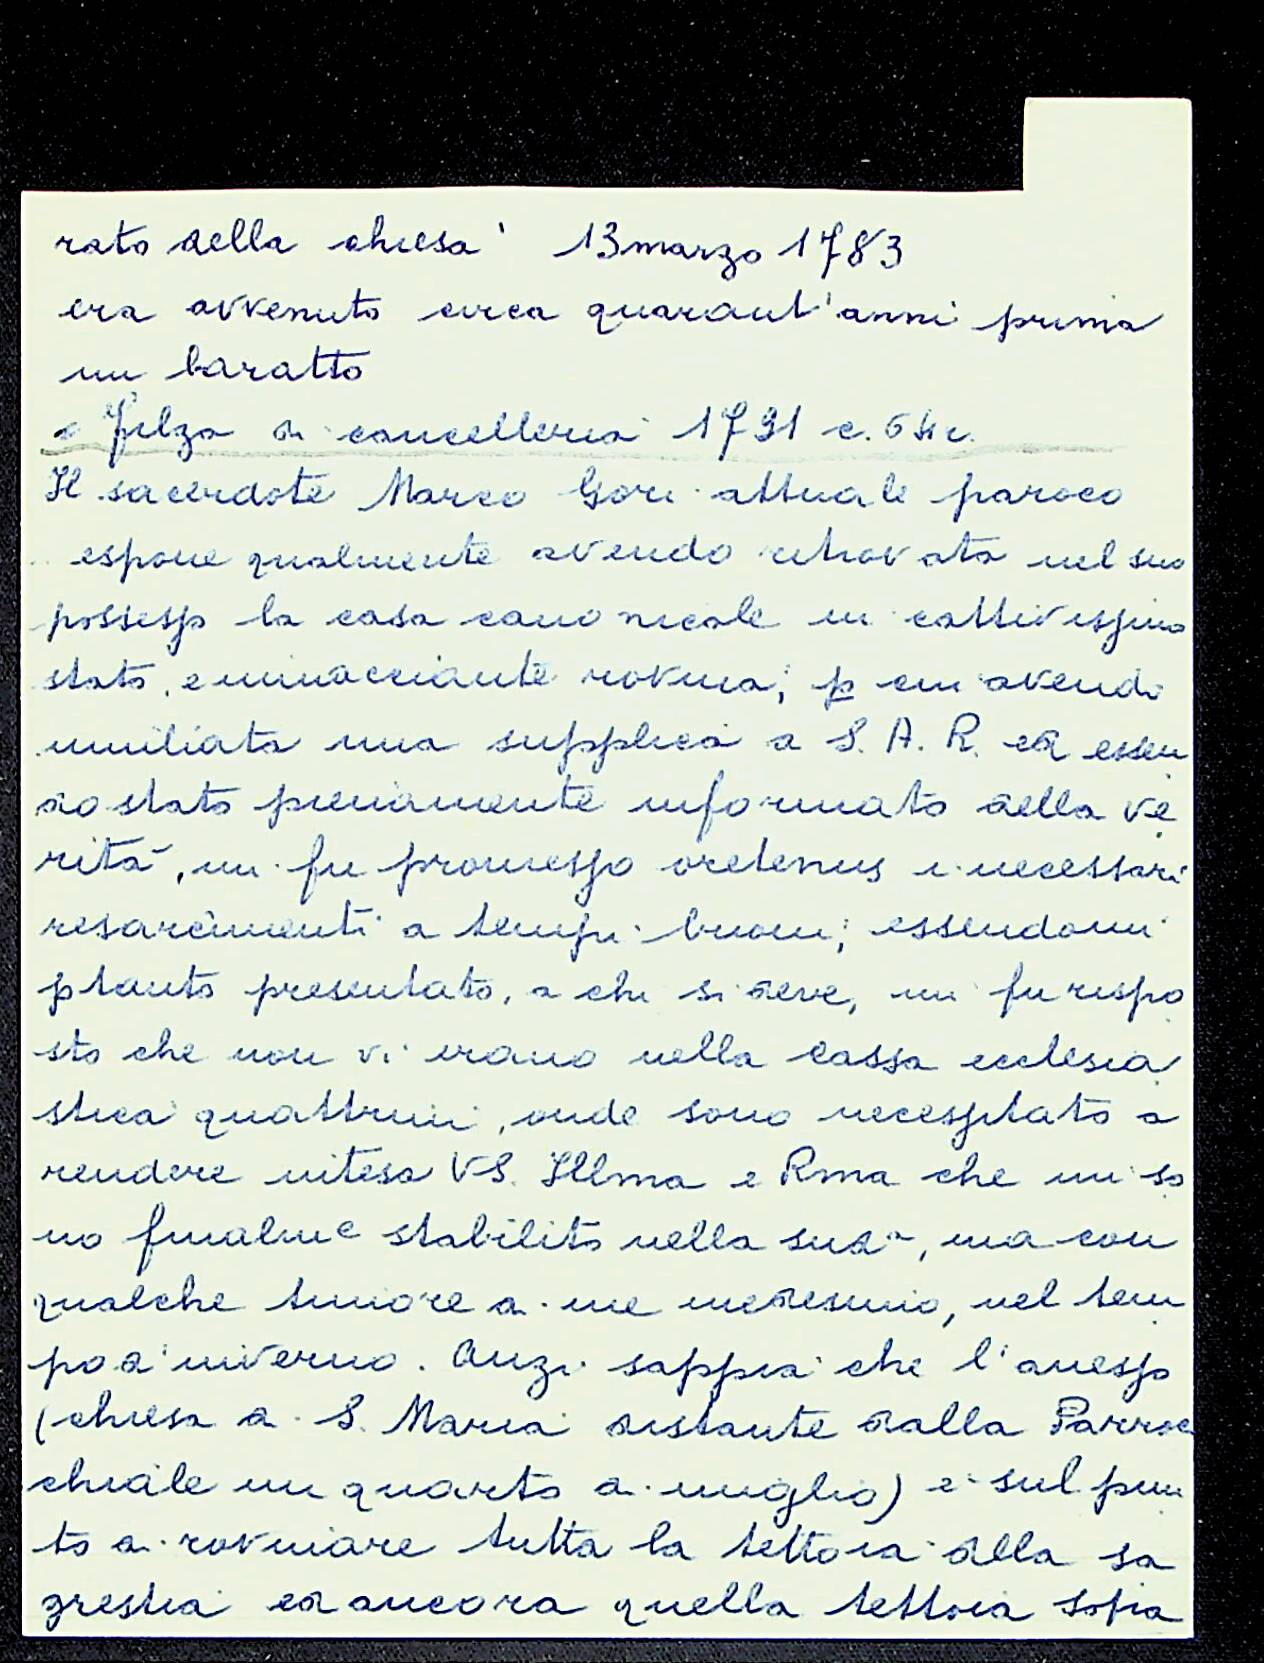 rato della chiesa' 13 marzo 1783
era avvenuto circa quarant'anni prima
un baratto
Filza di cancelleria 1791 c.
Il sacerdote Marco Gori attuale paroco
espone qualmente avendo ritrovata nel suo
possesso la casa canonicale in cattivissimo
stato, e minacciante rovina; p cui avendo
umiliata una supplica a S. A. R. ed essen
do stato pienamente informato della ve
rità, mi fu promesso oretenus i necessari
resarcimenti a tempi buoni; essendomi
ptanto presentato, a chi si deve, mi fu rispo
sto che non vi erano nella cassa ecclesia
stica quattrini, onde sono necessitato a
rendere intesa VS. Illma e Rma che mi so
no finalme stabilito nella sudª, ma con
qualche timore di me medesimo, nel tem
po d'inverno. Anzi sappia che l'anesso
(chiesa di S. Maria distante dalla Parroc
chiale un quarto di miglio) è sul pun
to di rovinare tutta la tettoia della sa
grestia ed ancora quella tettoia sopra